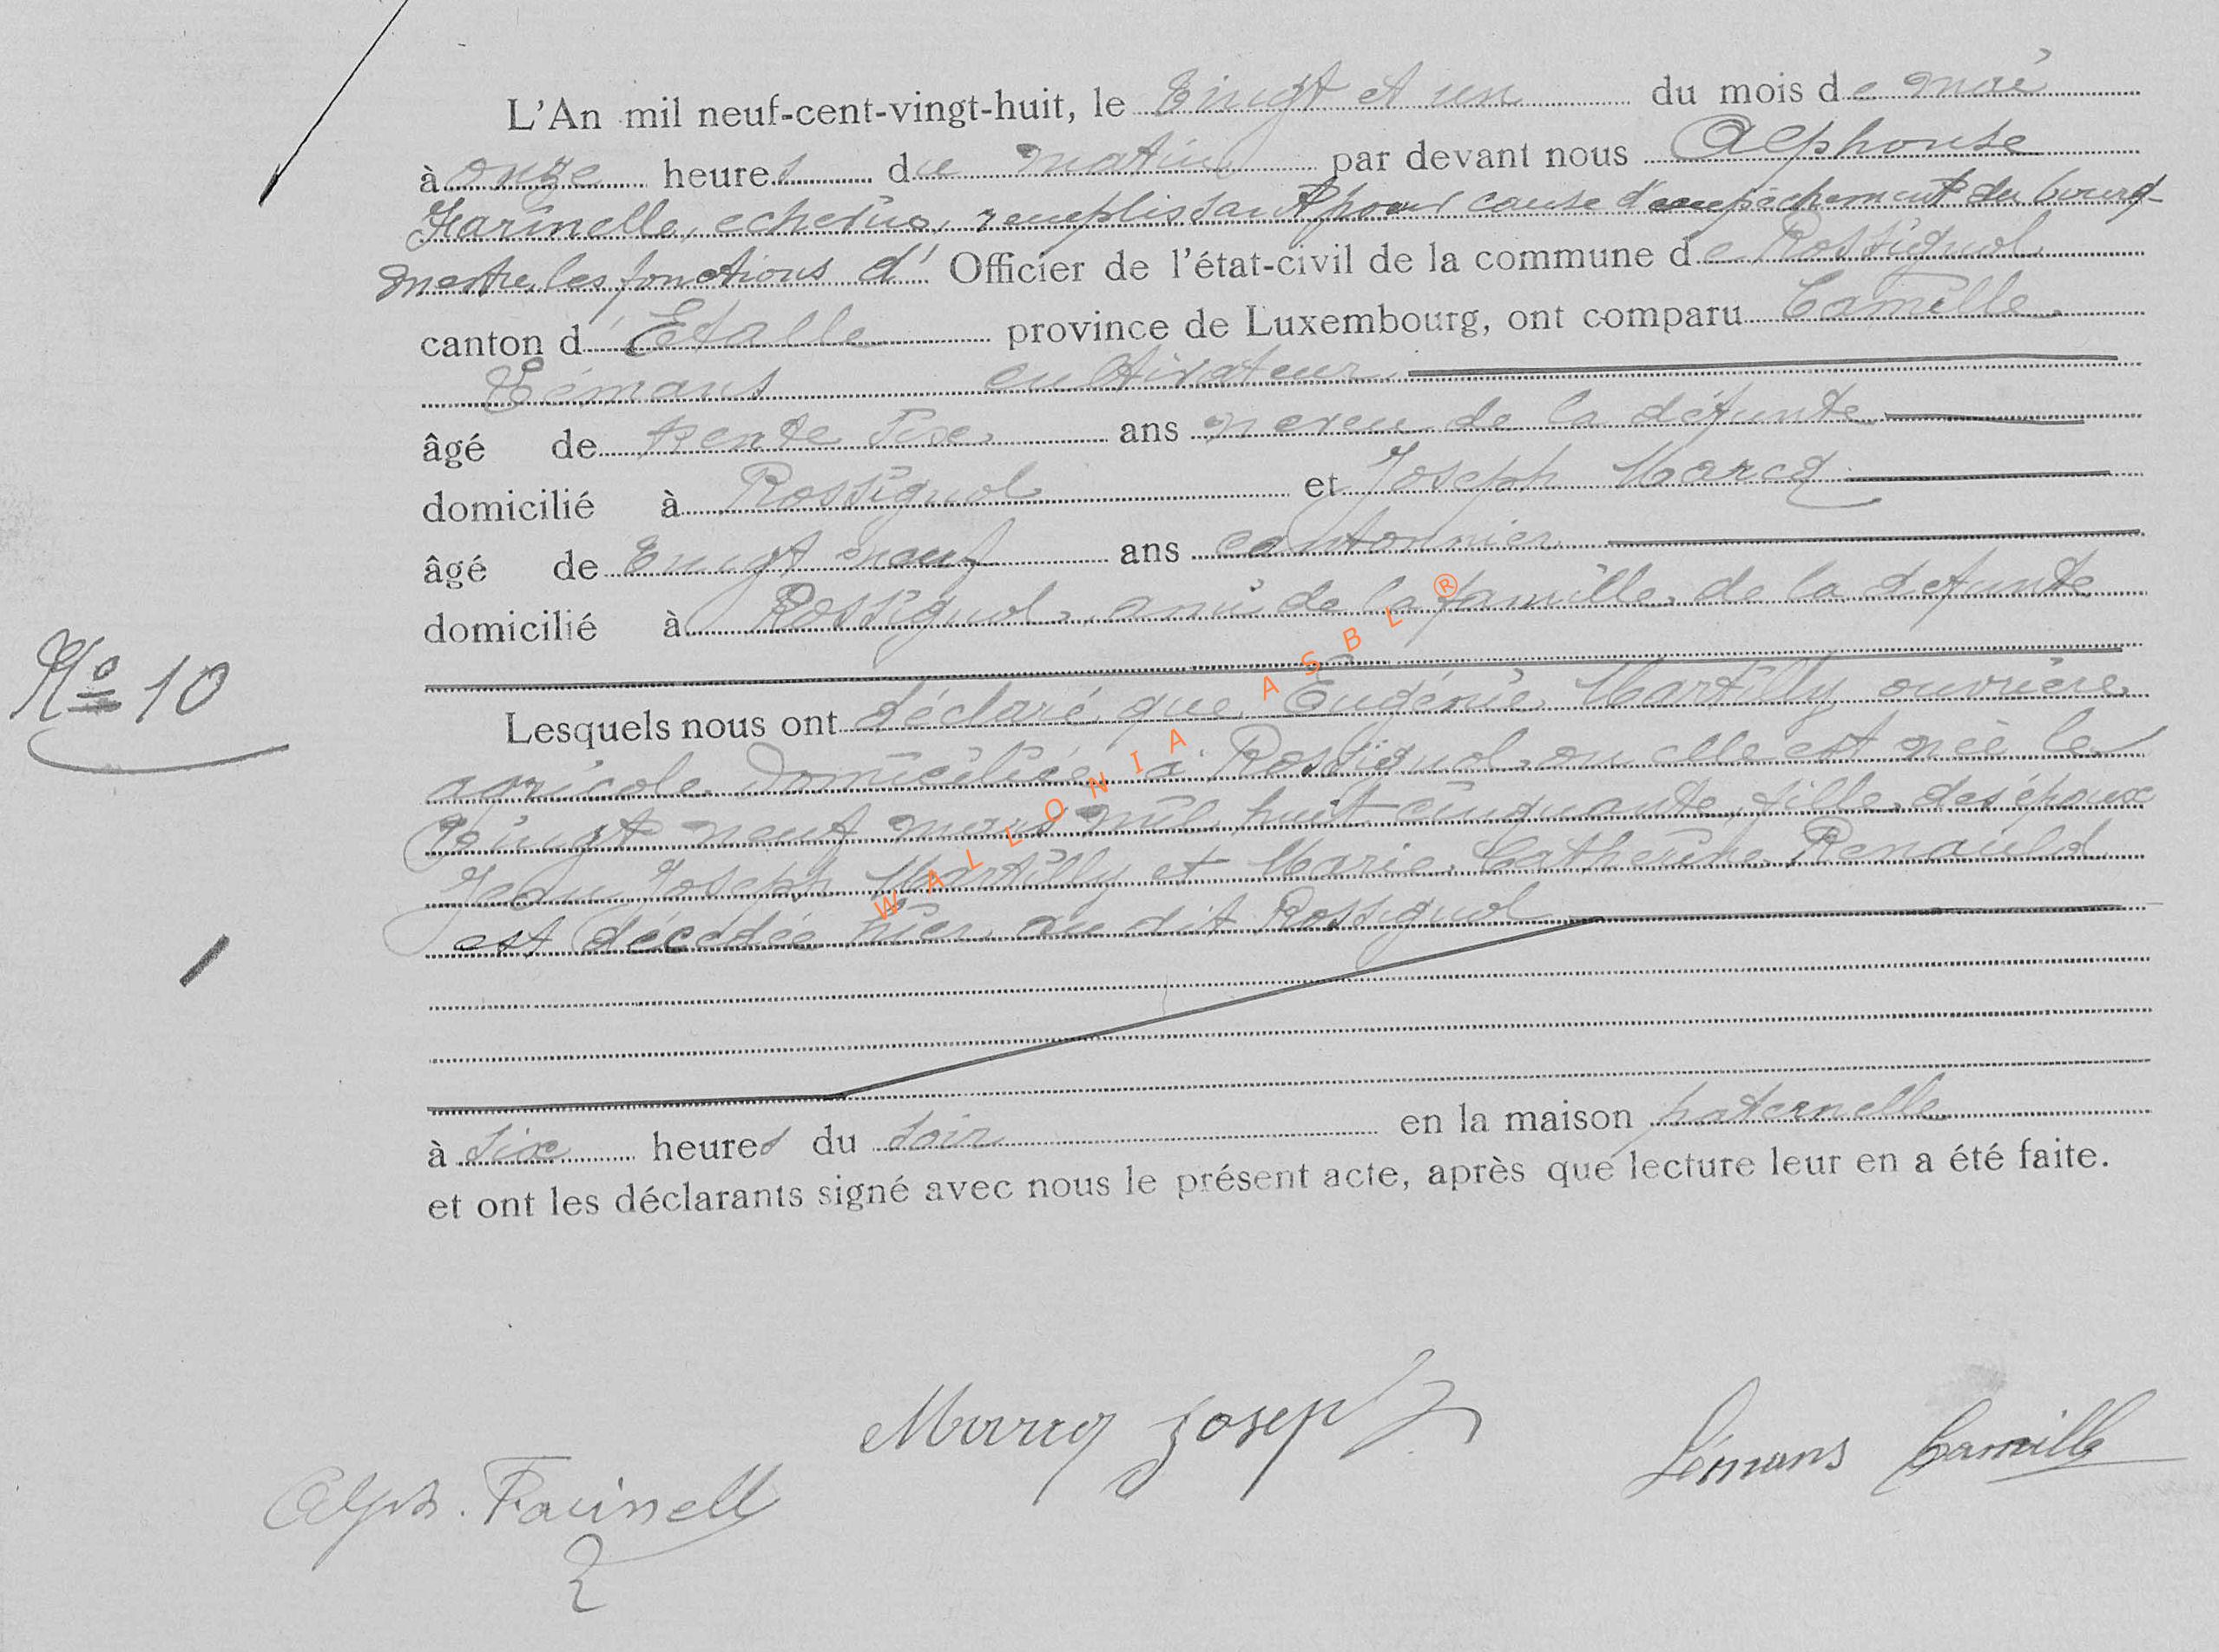 L'An mil neuf-cent-vingt-huit, le Vingt et un du mois de mai
à onze heures du matin par devant nous Alphonse
Farinelle, echevin, remplissant pour cause d'empêchement du bourg-
mestre, les fonctions d' Officier de l'état-civil de la commune de Rossignol
canton d'Etalle province de Luxembourg, ont comparu Camille
Lémans cultivateur
âgé de trente six ans neveu de la défunte
domicilié à Rossignol et Joseph Marcq
âgé de Vingt neuf ans cantonnier
domicilié à Rossignol, ami de la famille de la defunte
Nº 10
Lesquels nous ont déclaré que Eugénie Martilly ouvrière
agricole domiciliée à Rossignol, ou elle est née le
Vingt neuf mars mil huit cinquante, fille des époux
Jean Joseph Martilly et Marie Catherine Renauld
est décedée hier au dit Rossignol
à six heures du soir en la maison paternelle
et ont les déclarants signé avec nous le présent acte, après que lecture leur en a été faite.
Marcq Joseph
Lémans Camille
Alph. Farinelle
WALLONIA ASBL®